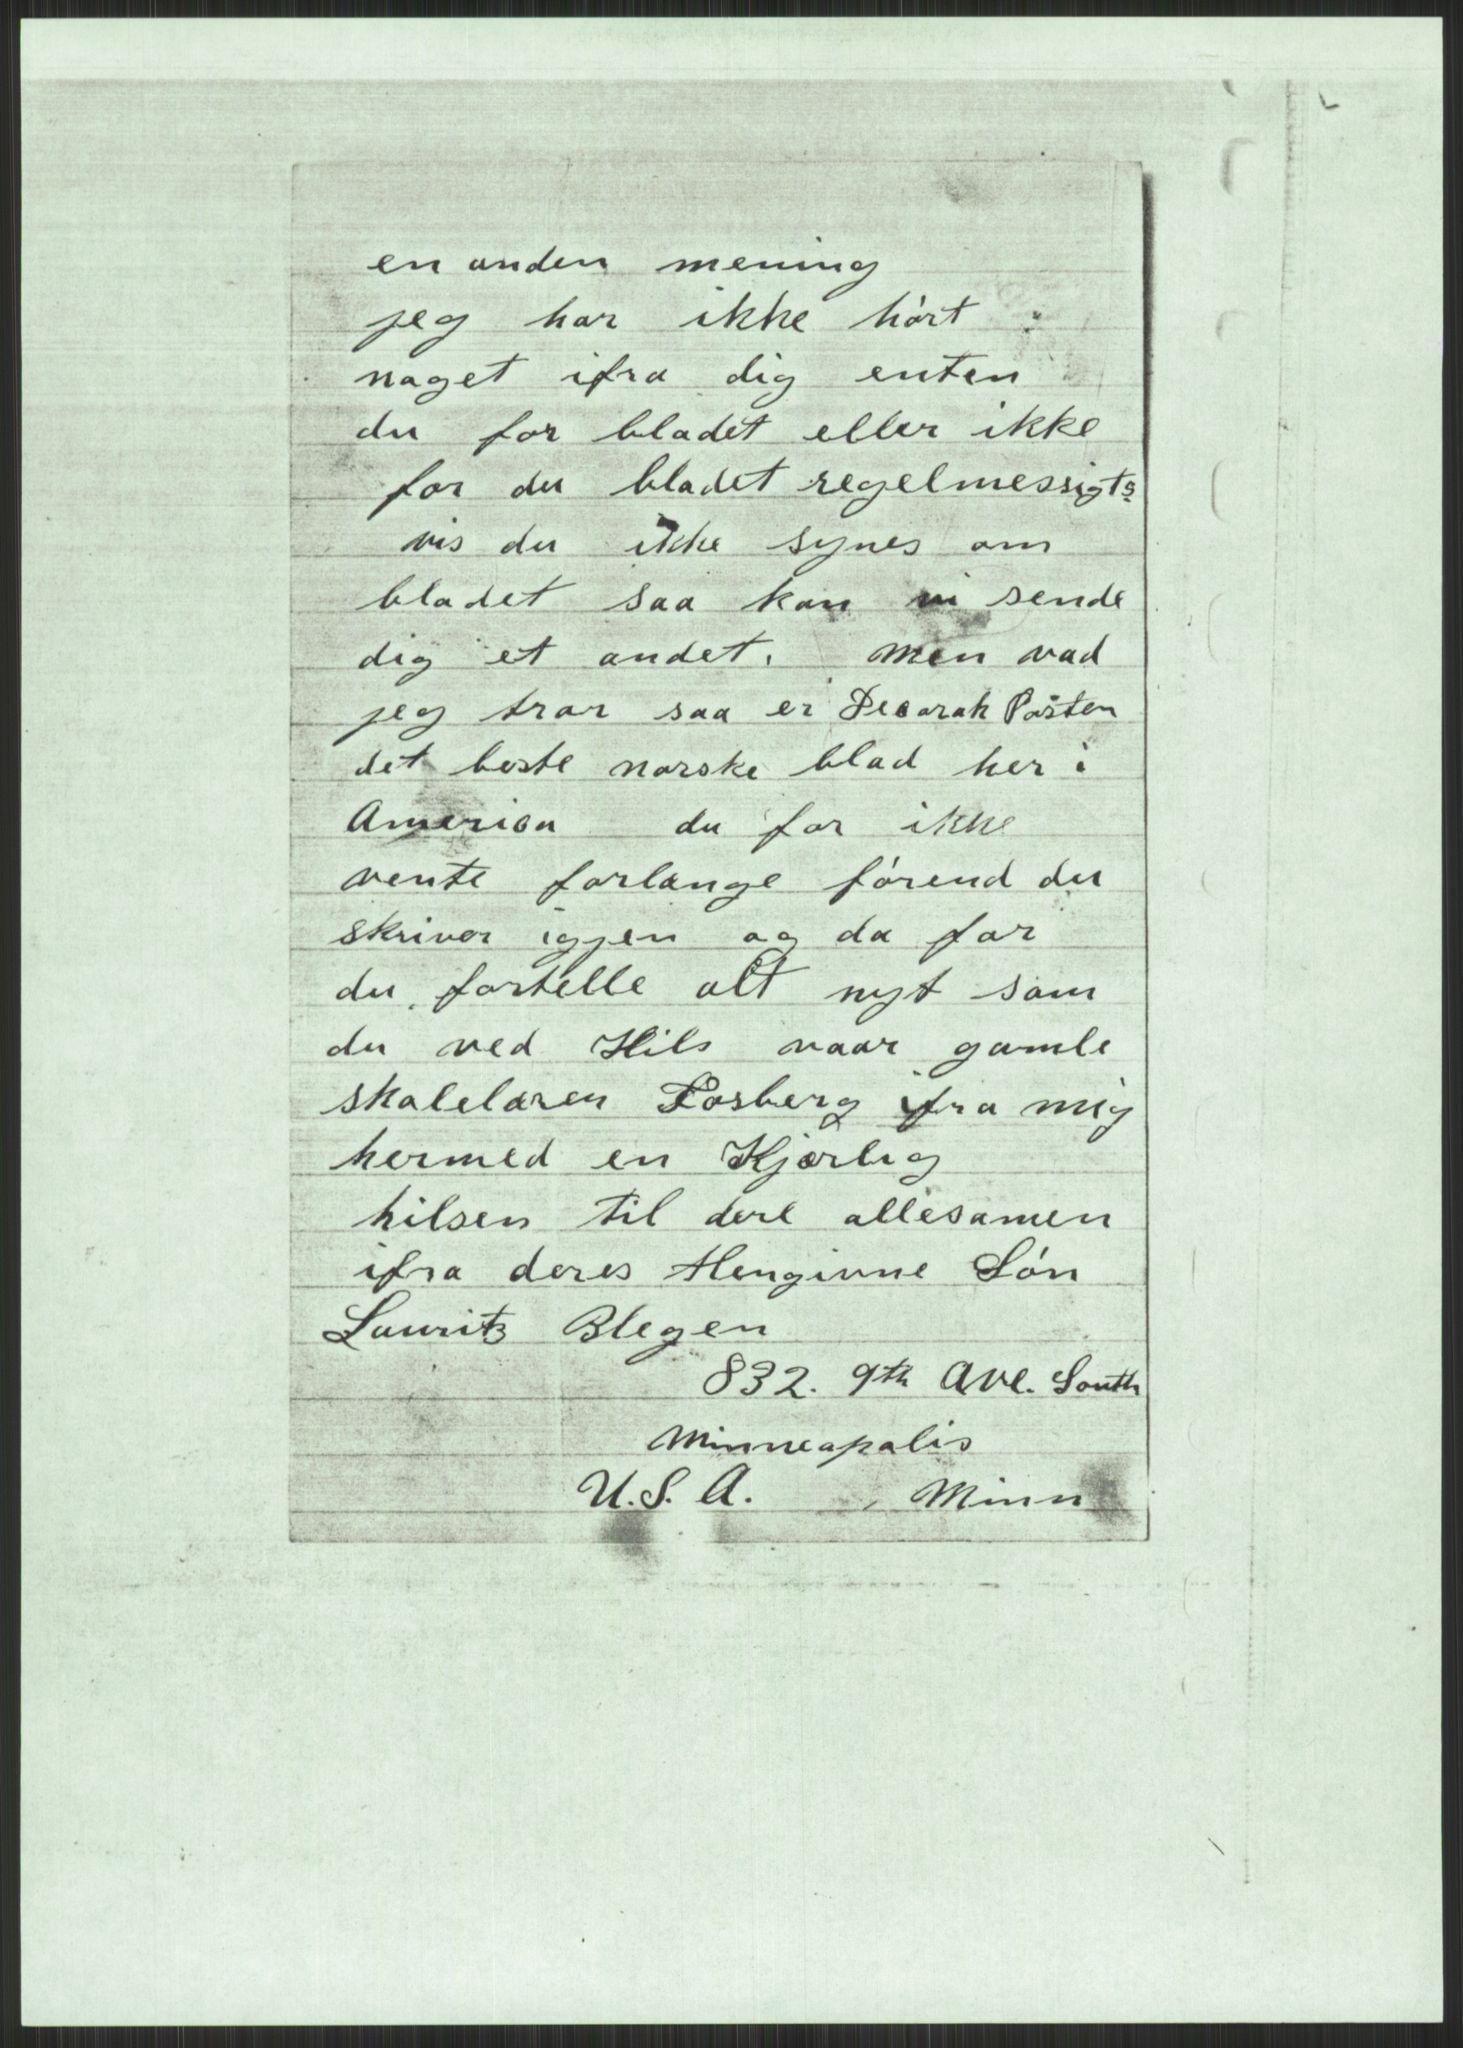 en anden mening
jeg har ikke hört
noget ifra dig enten
du for bladet eller ikke
for du bladet regelmessigts
vis du ikke synes om
bladet saa kan vi sende
dig et andet. Men vad
jeg tror saa er Decorah Posten
det beste norske blad her i
America du for ikke
vente forlænge förend du
skriver igjen og da for
du fortelle alt nyt som
du ved Hils vaar gamle
skolelæren Losberg ifra mig
hermed en Kjærlig
hilsen til dere allesamen
ifra deres Hengivne Sön
Lauritz Blegen
832. 9th Ave. South
Minneapolis
U.S. A. , Minn